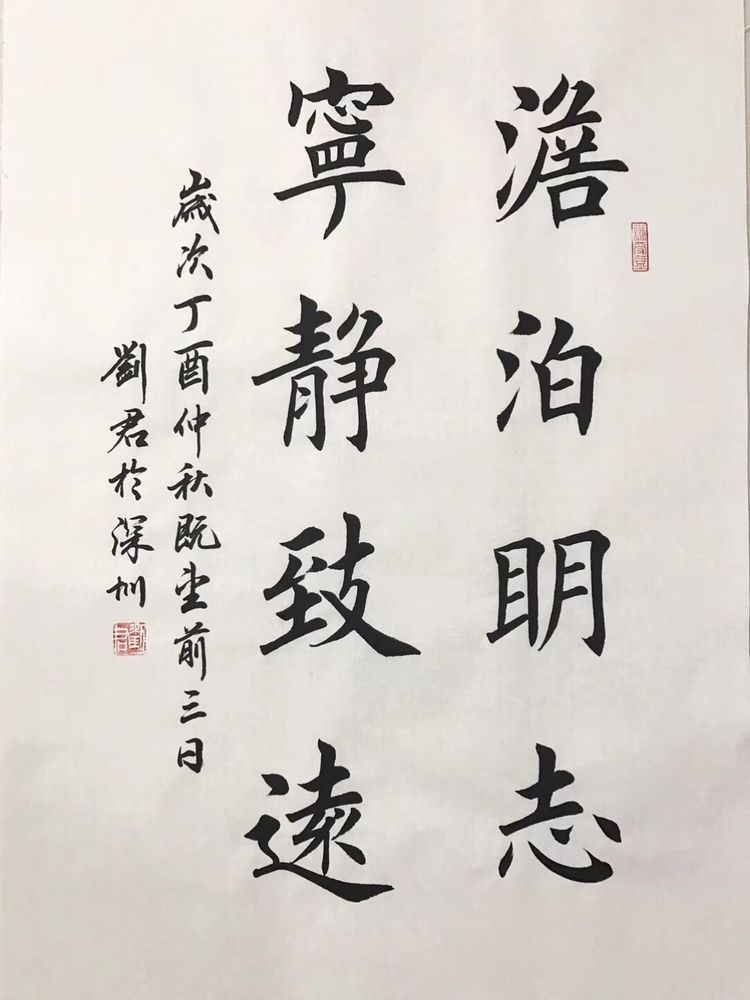 澹泊明志
寧静致遠
歲次丁酉仲秋既望前三日
劉君於深圳